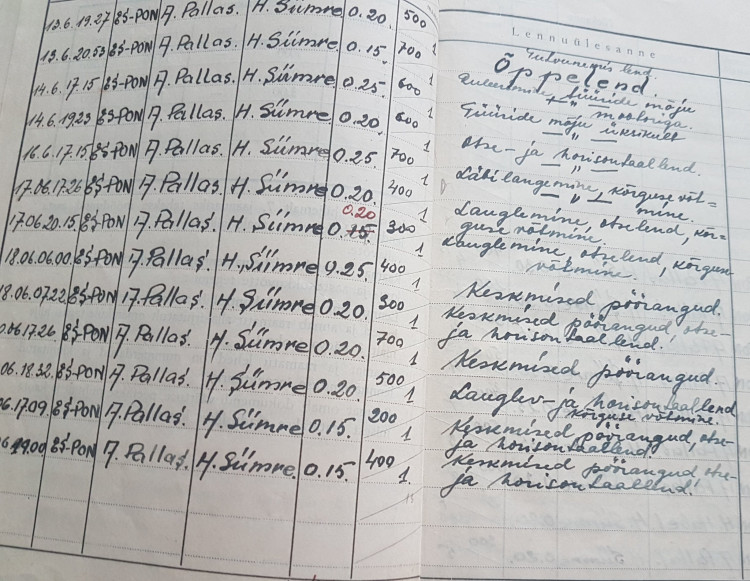 Lennuülesanne
13.6. 19.27 ES-PON A. Pallas. H. Sümre 0.20. 500 1 Tutvunemis lend.
Õppelend.
13.6. 20.53 ES-PON A. Pallas. H. Sümre 0.15. 700 1 tüüride mõju
mootoriga.
14.6. 17.15 ES-PON A. Pallas. H. Sümre 0.25. 600 1 Tüüride mõju üksikult
14.6. 19.23 ES-PON A. Pallas. H. Sümre 0.20. 600 1 — " —
16.6. 17.15 ES-PON A. Pallas. H. Sümre 0.25. 700 1 Otse- ja horisontaallend.
17.06. 17.26 ES-PON A. Pallas. H. Sümre 0.20. 400 1 — " —
Läbilangemine, kõrguse võt-
mine.
0.20
17.06. 20.15 ES-PON A. Pallas. H. Sümre 0.15. 300 1 Lauglemine, otselend, kõr-
guse võtmine.
18.06. 06.00 ES-PON A. Pallas. H. Sümre 0.25. 400 1 Lauglemine, otselend, kõrguse
võtmine.
18.06. 07.22 ES-PON A. Pallas. H. Sümre 0.20. 300 1 Keskmised pöörangud.
06. 17.26 ES-PON A. Pallas. H. Sümre 0.20. 700 1 Keskmised pöörangud, otse-
ja horisontaallend!
06. 18.32 ES-PON A. Pallas. H. Sümre 0.20. 500 1 Keskmised pöörangud.
06. 17.09. ES-PON A. Pallas. H. Sümre 0.15. 200 1 Lauglev- ja horisontaallend
kõrguse võtmine.
06 19.00 ES-PON A. Pallas. H. Sümre 0.15. 400 1. Keskmised pöörangud, otse-
ja horisontaallend
Keskmised pöörangud otse-
ja horisontaallend!